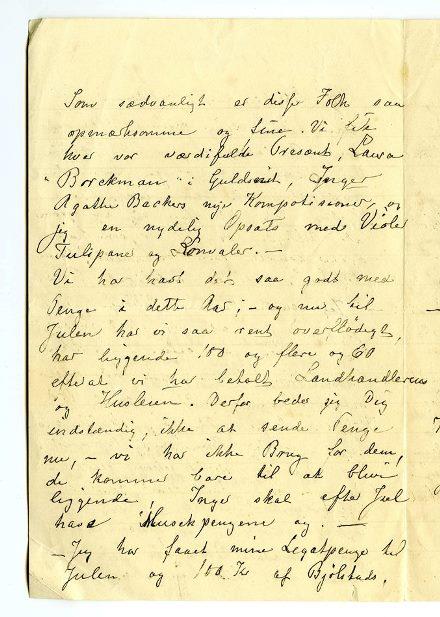 Som sædvanligt er disse Folk saa
opmærksomme og fine. Vi fik
hver vor værdifulde Presant, Laura
"Borckman" i Guldsnit, Inger
Agathe Backers nye Kompotisioner, og
jeg en nydelig Opsats med Violer
Tulipane og Konvaler. —
Vi har havt det saa godt med
Penge i dette Aar; – og nu til
Julen har vi saa rent overflødigt,
har liggende 100 og flere og 60
efterat vi har betalt Landhandleren
og Husleien. Derfor beder jeg Dig
indstændig, ikke at sende Penge
nu, – vi har ikke Brug for dem,
de kommer bare til at blive
liggende, Inger skal efter Jul
have Musikpengene og. —
– Jeg har faaet mine Legatpenge til
Julen og 100 Kr af Bjölstads.